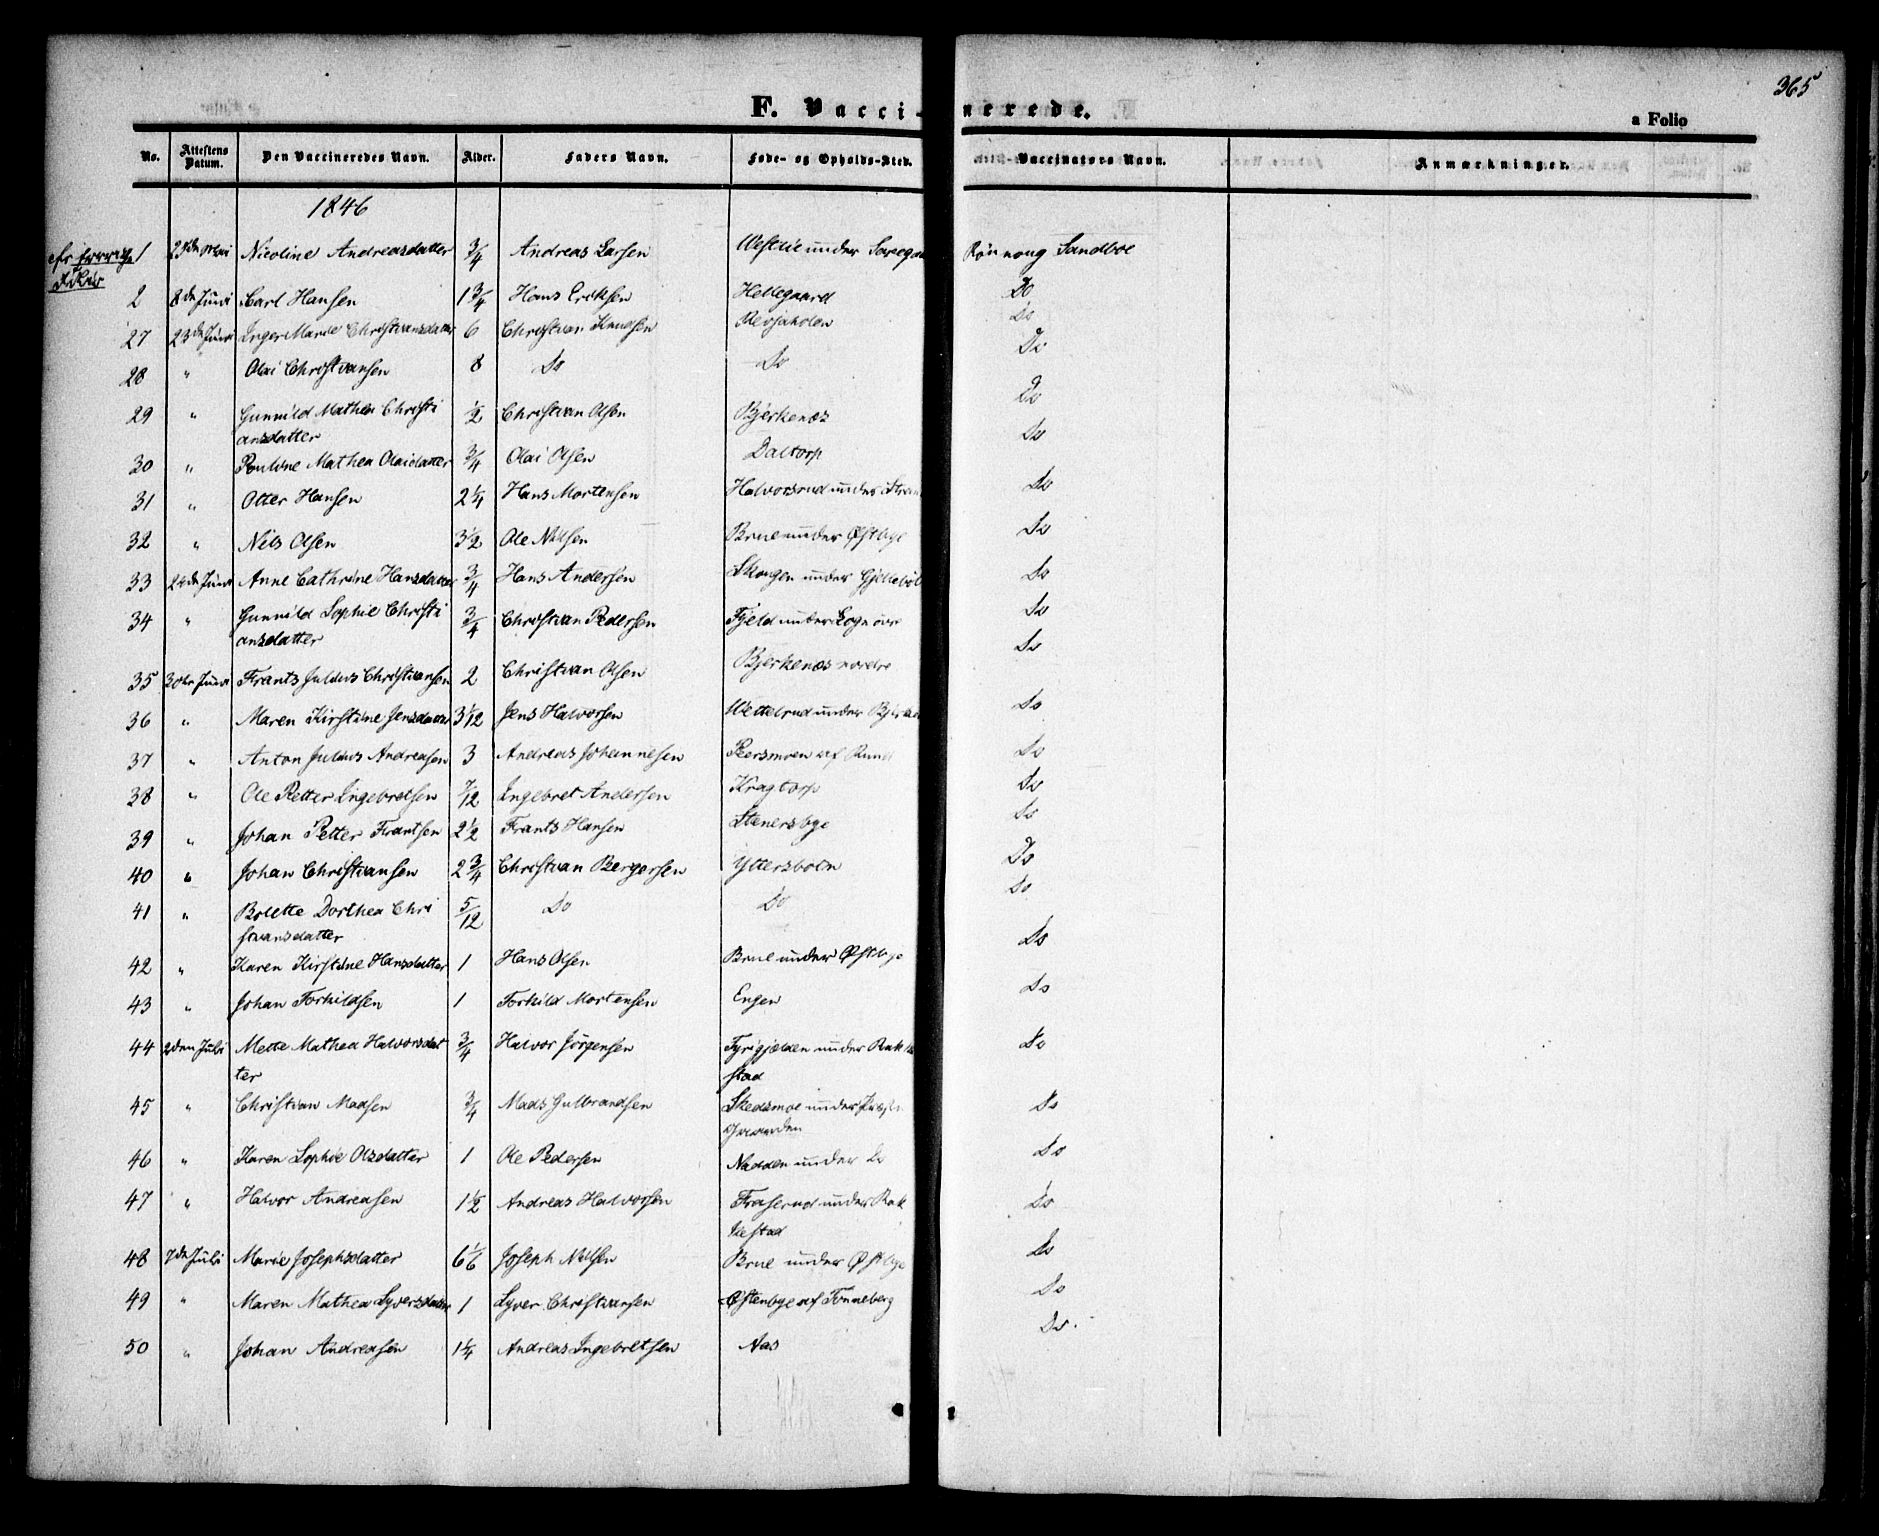 365
F. Vaccinerede.
a Folio
No. Attestens Datum. Den Vaccineredes Navn. Alder. Faders Navn. Føde- og Opholds-Sted. Vaccinators Navn. Anmærkninger.
1846
1 Mai Nicoline Andreasdatter 3/4 Andreas Larsen under Sandboe
2 8de Juni Carl Hansen 1 3/4 Hans Eriksen Hellegaard Do
27 23de Juni Inger Marie Christiansdatter 6 Christian Knudsen Revsaholen Do
28 " Olai Christiansen 8 Do Do Do
29 " Gunnild Mathea Christi 1/2 Christian Olsen Bjerkenæs Do
ansdatter
30 " Pouline Mathea Olaidatter 3/4 Olai Olsen Daltorp Do
31 " Otter Hansen 2 1/4 Hans Mortensen Halvorsrud under Do
32 " Nils Olsen 3 1/2 Ole Nilsen Brue under Østbye Do
33 24de Juni Anne Cathrine Hansdatter 3/4 Hans Andersen Skougen under Gjellebøl Do
34 " Gunnild Sophie Christi 3/4 Christian Pedersen Fjeld under Do
ansdatter
35 30te Juni Frants Julius Christiansen 2 Christian Olsen Bjerkenæs nordre Do
36 " Maren Kirstine Jensdatter 3 1/12 Jens Halvorsen Wettelrud under Do
37 " Anton Julius Andreasen 3 Andreas Johannesen Peersmoen af Rund Do
38 " Ole Petter Ingebretsen 7/12 Ingebret Andersen Kragtorp Do
39 " Johan Petter Frantsen 2 1/2 Frants Hansen Stenersbye Do
40 " Johan Christiansen 2 3/4 Christian Bergersen Yttersbøln Do
41 " Bolette Dorthea Chri 5/12 Do Do Do
stiansdatter
42 " Karen Kirstine Hansdatter 1 Hans Olsen Brue under Østbye Do
43 " Johan Torkildsen 1 Torkild Mortensen Engen Do
44 2den Juli Mette Mathea Halvorsdat 3/4 Halvor Jørgensen under Rakke Do
ter stad
45 " Christian Madsen 3/4 Mads Gulbrandsen Skedsmoe under Do
46 " Karen Sophie Olsdatter 1 Ole Pedersen Nadden under Do Do
47 " Halvor Andreasen 1 1/2 Andreas Halvorsen Fraserud under Rak Do
kestad
48 7de Juli Marie Josephsdatter 6 1/6 Joseph Nilsen Brue under Østbye Do
49 " Maren Mathea Syversdatter 1 Syver Christiansen Østenbye af Tønneberg Do
50 " Johan Andreasen 1 1/4 Andreas Ingebretsen Aas Do.